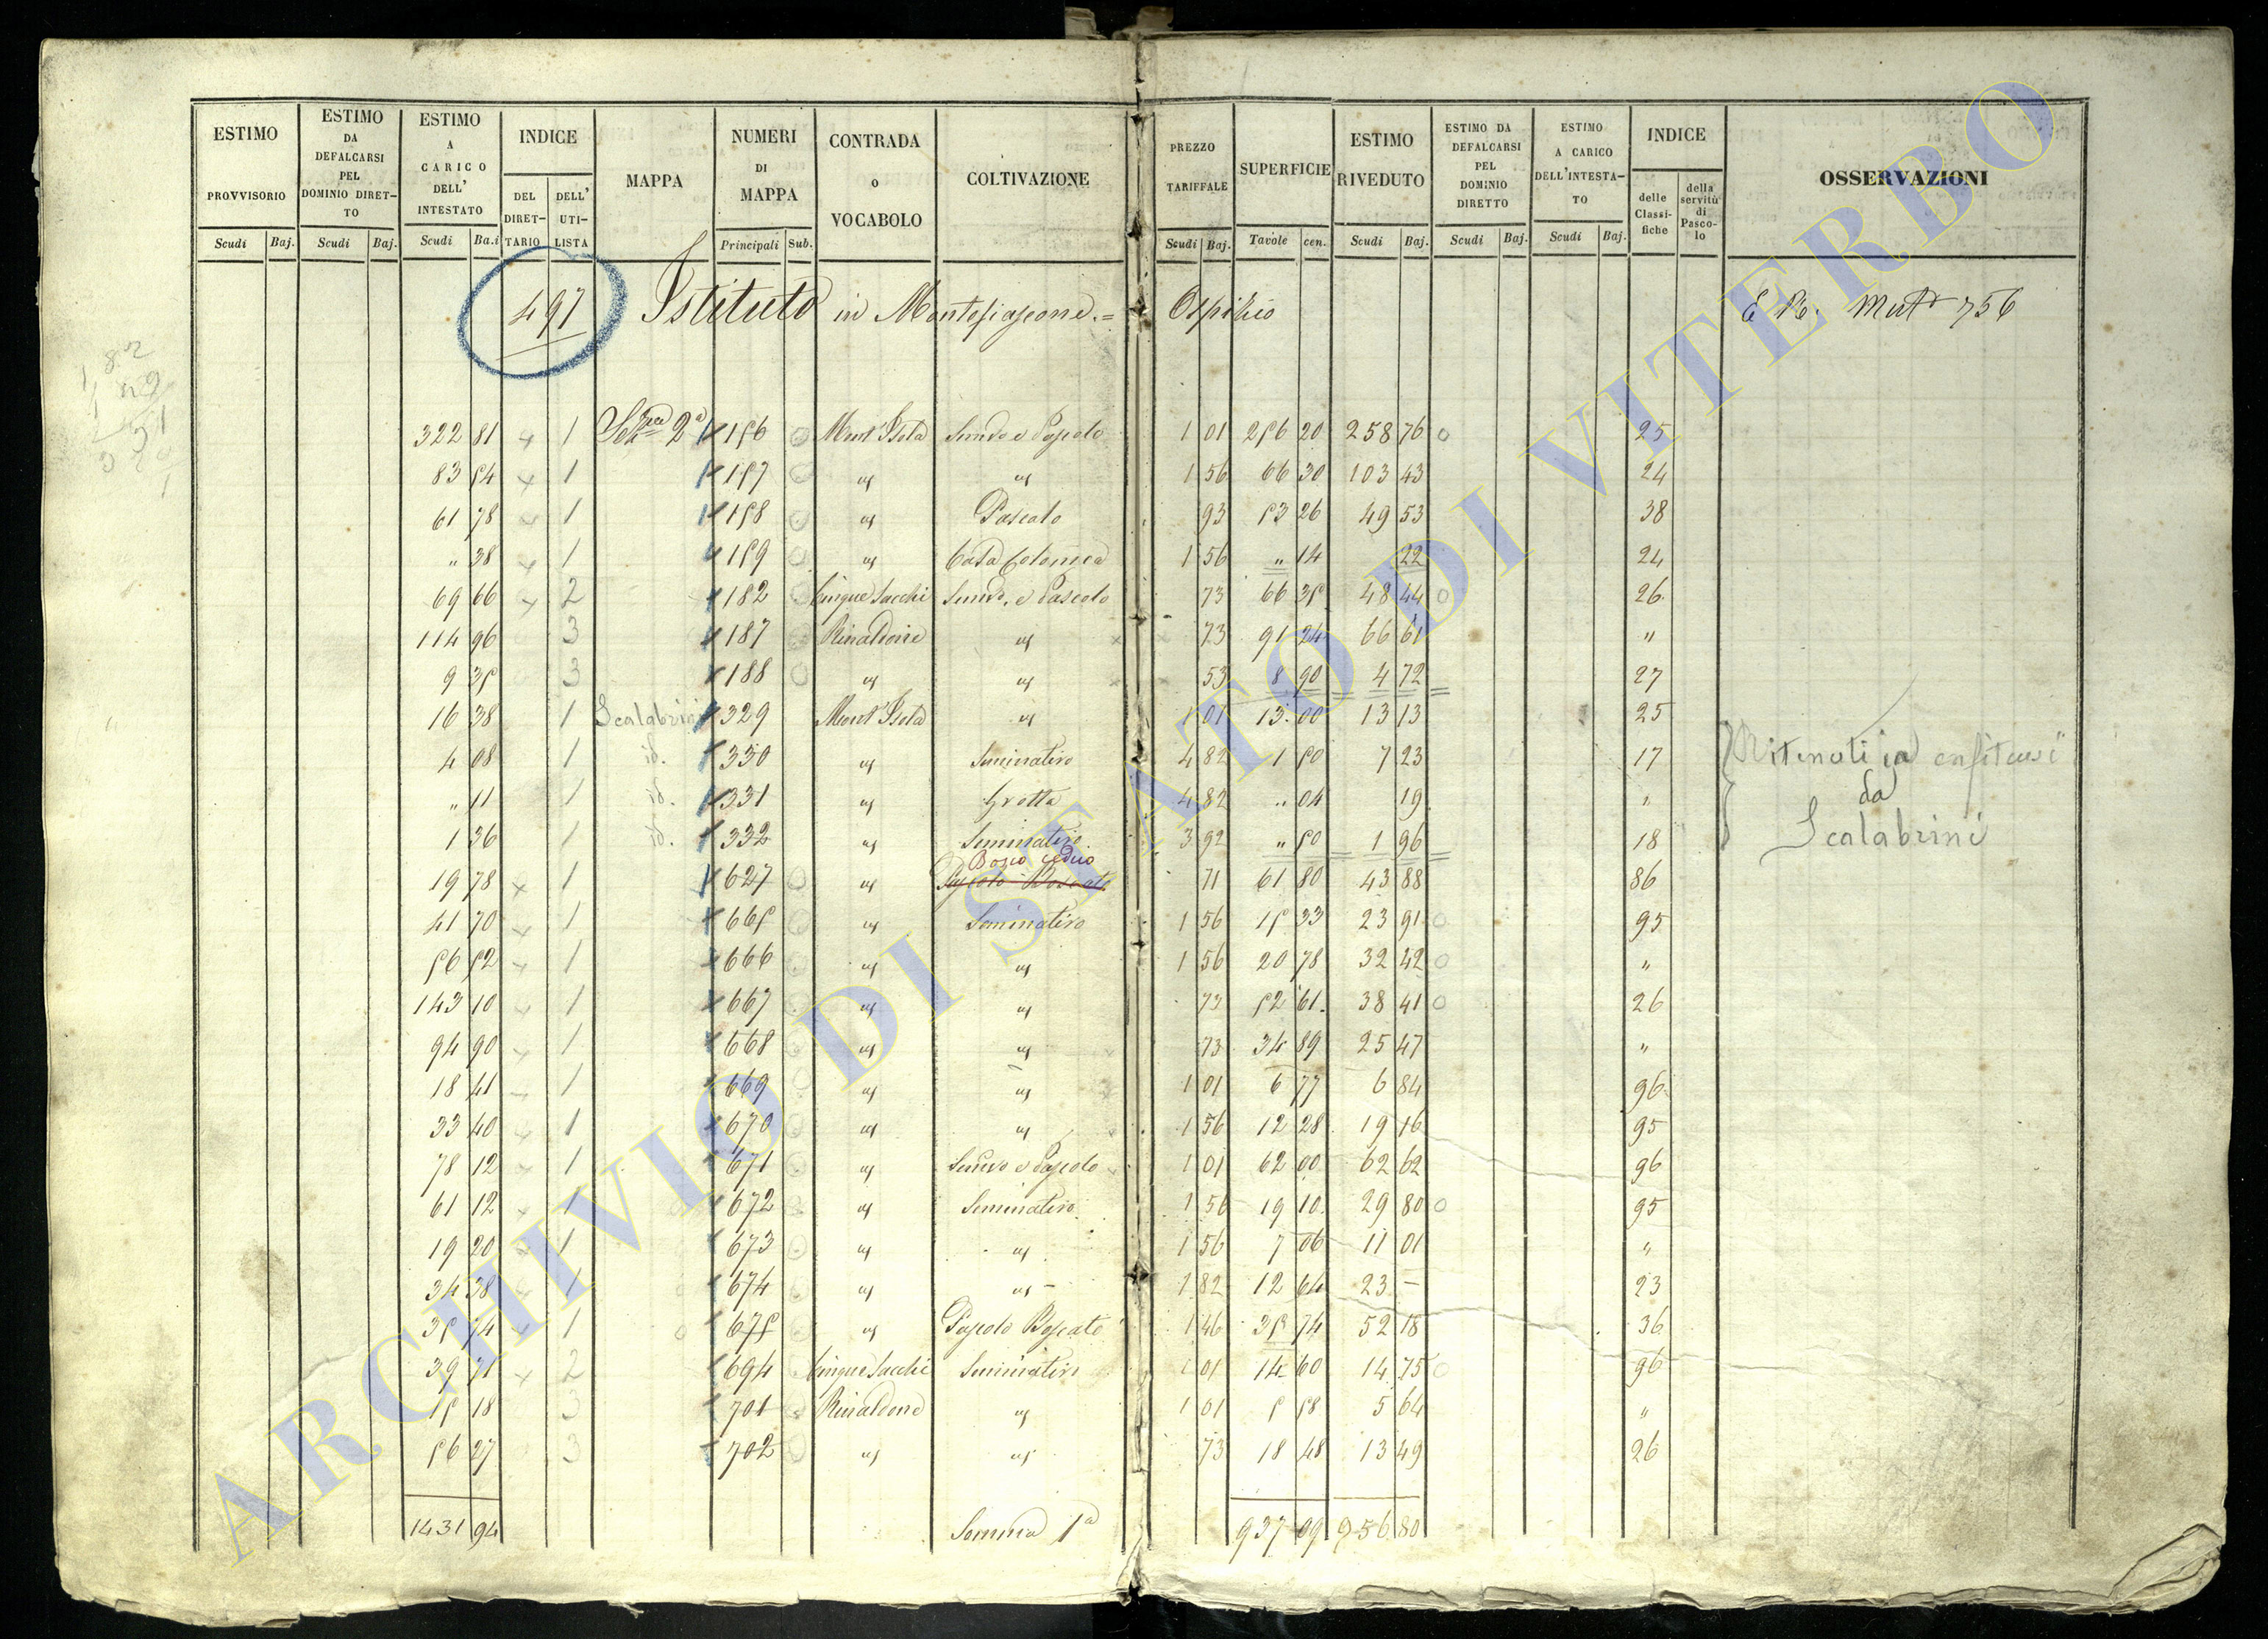 ESTIMO PROVVISORIO
ESTIMO DA DEFALCARSI PEL DOMINIO DIRET-TO
ESTIMO A CARICO DELL' INTESTATO
INDICE
DEL DIRET-TARIO
DELL' UTI-LISTA
MAPPA
NUMERI DI MAPPA
CONTRADA o VOCABOLO
COLTIVAZIONE
PREZZO TARIFFALE
SUPERFICIE
ESTIMO RIVEDUTO
ESTIMO DA DEFALCARSI PEL DOMINIO DIRETTO
ESTIMO A CARICO DELL'INTESTA-TO
INDICE
delle Classi-fiche
della servitù di Pasco-lo
OSSERVAZIONI
Scudi Baj. Scudi Baj. Scudi Ba.i Principali Sub. Scudi Baj. Tavole cen. Scudi Baj. Scudi Baj. Scudi Baj.
497 Istituto in Montefiascone = Ospizio Mut 756
322 81 1 Sez 2a 156 Mont Isola Semivo e Pascolo 1 01 256 20 258 76 25
83 54 1 157 " " 1 56 66 30 103 43 24
61 78 1 158 " Pascolo 93 53 26 49 53 38
" 38 1 159 " Casa Colonica 1 56 " 14 22 24
69 66 2 182 Cinque Sacchi Semivo e Pascolo 73 66 35 48 44 26
114 96 3 187 Rinaldone " 73 91 24 66 61 "
9 35 3 188 " " 53 8 90 4 72 27
16 38 1 Scalabrini 329 Mont Isola " 1 01 13 00 13 13 25
4 08 1 id. 330 " Seminativo 4 82 1 50 7 23 17 Ritenuti in enfiteusi
" 11 1 id. 331 " Grotta 4 82 " 04 19 " da
1 36 1 id. 332 " Seminativo 3 92 " 50 1 96 18 Scalabrini
Bosco ceduo
19 78 1 627 " Pascolo Boscato 71 61 80 43 88 86
41 70 1 665 " Seminativo 1 56 15 33 23 91 95
56 52 1 666 " " 1 56 20 78 32 42 "
143 10 1 667 " " 73 52 61 38 41 26
94 90 1 668 " " 73 34 89 25 47 "
18 41 1 669 " " 1 01 6 77 6 84 96
33 40 1 670 " " 1 56 12 28 19 16 95
78 12 1 671 " Semivo e Pascolo 1 01 62 00 62 62 96
61 12 1 672 " Seminativo 1 56 19 10 29 80 95
19 20 1 673 " " 1 56 7 06 11 01 "
34 38 1 674 " " 1 82 12 64 23 — 23
35 74 1 675 " Pascolo Boscato 1 46 35 74 52 18 36
39 71 2 694 Cinque Sacchi Seminativo 1 01 14 60 14 75 96
15 18 3 701 Rinaldone " 1 01 5 58 5 64 "
56 27 3 702 " " 73 18 48 13 49 26
1431 94 Somma 1a 937 09 956 80
ARCHIVIO DI STATO DI VITERBO